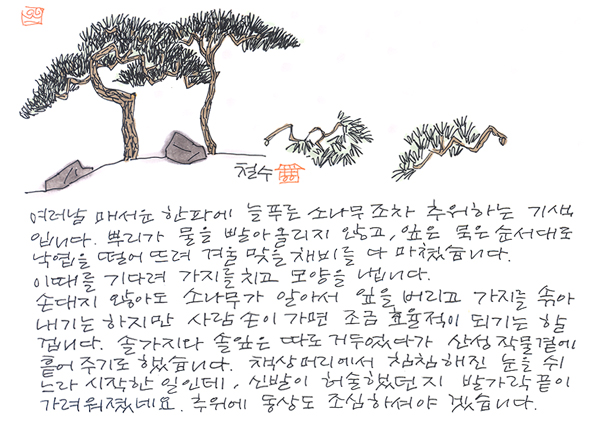 철수
여러날 매서운 한파에 늘푸른 소나무조차 추워하는 기색
입니다. 뿌리가 물을 빨아올리지 않고, 잎은 묵은 순서대로
낙엽을 떨어 뜨려 겨울 맞을 채비를 다 마쳤습니다.
이때를 기다려 가지를 치고 모양을 냅니다.
손대지 않아도 소나무가 알아서 잎을 버리고 가지를 솎아
내기는 하지만 사람 손이 가면 조금 효율적이 되기는 할
겁니다. 솔가지와 솔잎은 따로 거두었다가 산성작물곁에
흩어 주기로 했습니다. 책상머리에서 침침해진 눈을 쉬
느라 시작한 일인데, 신발이 허술했던지 발가락끝이
가려워졌네요. 추위에 동상도 조심하셔야 겠습니다.